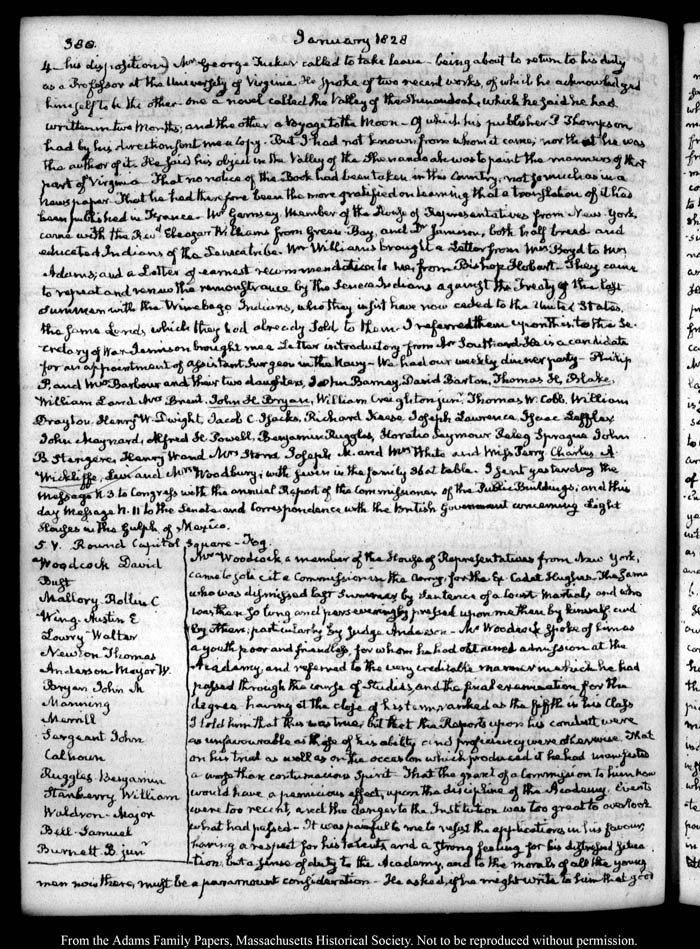 388.
January 1828
4. his disposition) Mr George Tucker called to take leave being about to return to his duty
as a Professor at the University of Virginia. He spoke of two recent works, of which he acknowledged
himself to be the other one a novel called the Valley of the Shenandoah, which he said he had
written in two Months; and the other a Voyage to the Moon Of which his publisher P. Thompson,
had by his direction sent me a copy. But I had not known from whom it came, nor that he was
the author of it. He said his object in the Valley of the Shenandoah was to paint the manners of that
part of Virginia That no notice of the Book had been taken in this Country, not so much as in a
newspaper. That he had therefore been the more gratified on learning that a translation of it had
been published in France Mr Garnsey Member of the House of Representatives from New-York,
came with the Revd Eleazar Williams from Green Bay, and Dr Jamison, both half breed and
educated Indians of the Seneca tribe. Mr Williams brought a Letter from Mrs Boyd to Mrs
Adams; and a Letter of earnest recommendation to me, from Bishop Hobart. They came
to repeat and renew the remonstrance by the Seneca Indians against the Treaty of the last
Summer with the Winebago Indians, who they insist have now ceded to the United States
the same Lands which they had already sold to them. I referred them upon this to the Se-
cretary of War. Jamison brought me a Letter introductory from Mr Southard He is a candidate
for an appointment of assistant Surgeon in the Navy We had our weekly dinner party Philip
P. and Mrs Barbour and their two daughters, John Barney, David Barton, Thomas H. Blake,
William Carl Mrs Brent, John H. Bryan, William Creighton junr, Thomas W. Cobb, William
Drayton, Henry W. Dwight, Jacob C. Isacks, Richard Keese Joseph Lawrence Isaac Leffler
John Maynard, Alfred H. Powell, Benjamin Ruggles, Horatio Seymour Peleg Sprague John
B Sterigere, Henry W and Mrs Storrs Joseph M. and Mrs White and Miss Perry Charles A.
Wickliffe, Levi and Mrs Woodbury; with seven in the family at table. I sent yesterday the
Message N. 3 to Congress with the annual Report of the Commissioner of the Public Buildings; and this
day Message N. 11 to the Senate and Correspondence with the British Government concerning Light
Houses in the Gulph of Mexico.
5 V. Round Capitol Square Fog.
Woodcock David
Bust
Mallory Rollin C
Wing Austin E
Lowry Walter
Newton Thomas
Anderson Major W.
Bryan John M
Manning
Merrill
Sergeant John
Calhoun
Ruggles Benjamin
Stanberry William
Waldron Major
Bell Samuel
Burnett B. junr
Mr Woodcock a member of the House of Representatives from New York,
came to solicit a Commission in the army, for the Ex Cadet Hughes. The same
who was dismissed last Summer by Sentence of a Court Martial; and who
was then so long and perseveringly pressed upon me there by himself and
by others; particularly by Judge Anderson Mr Woodcock spoke of him as
a youth poor and friendless, for whom he had obtained admission at the
Academy, and referred to the very creditable manner in which he had
passed through the course of Studies, and the final examination for the
degree having at the close of his term, ranked as the fifth in his Class
I told him that this was true; but that the Reports upon his conduct, were
as unfavourable as those of his ability and proficiency were otherwise. That
on his trial as well as on the occasion which produced it he had manifested
a worse than contumacious Spirit That the grant of a Commission to him now
would have a pernicious effect, upon the discipline of the Academy. Events
were too recent, and the danger to the Institution was too great to overlook
what had passed It was painful to me to resist the applications in his favour,
having a respect for his talents and a strong feeling for his distressed situa-
tion, but a sense of duty to the Academy, and to the morals of all the young
men now there, must be a paramount consideration He asked, if he might write to him that good
From the Adams Family Papers, Massachusetts Historical Society. Not to be reproduced without permission.